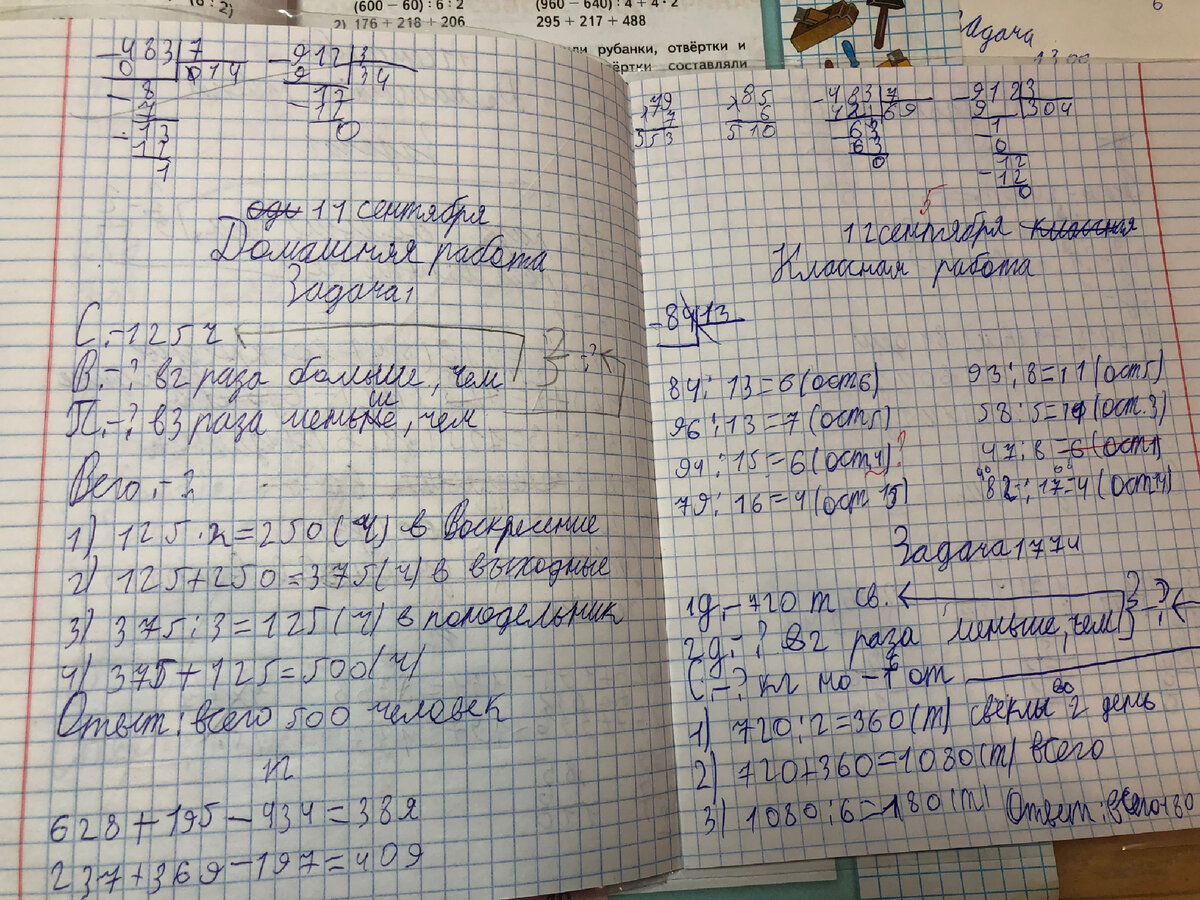 (600 − 60) : 6 : 2
(960 − 640) : 4 + 4 · 2
2) 176 + 218 + 206
295 + 217 + 488
или рубанки, отвёртки и
вёртки составляли
Задача
483 7
0 014
8
7
13
17
1
912 3
9 34
12
12
0
11 сентября
Домашняя работа
Задача 1
С. - 125 ч
В. - ? в 2 раза больше, чем
П. - ? в 3 раза меньше, чем
Вего. - ?
1) 125 · 2 = 250 (ч) в Воскресение
2) 125 + 250 = 375 (ч) в выходные
3) 375 : 3 = 125 (ч) в понодельник
4) 375 + 125 = 500 (ч)
Ответ: всего 500 человек
628 + 195 − 434 = 389
237 + 369 − 197 = 409
79
7
553
85
6
510
483 7
69
63
63
0
912 3
9 304
1
0
12
12
0
5
12 сентября классная
Классная работа
84 13
84 : 13 = 6 (ост 6)
93 : 8 = 11 (ост 5)
96 : 13 = 7 (ост 5)
58 : 5 = 11 (ост. 3)
94 : 15 = 6 (ост 4) ?
47 : 8 = 6 (ост 1)
79 : 16 = 4 (ост 15)
82 : 17 = 4 (ост 4)
Задача 1774
1д. - 720 т св.
2д. - ? в 2 раза меньше, чем
1) 720 : 2 = 360 (т) свеклы во 2 день
2) 720 + 360 = 1080 (т) всего
3) 1080 : 6 = 180 (т) Ответ: всего 180